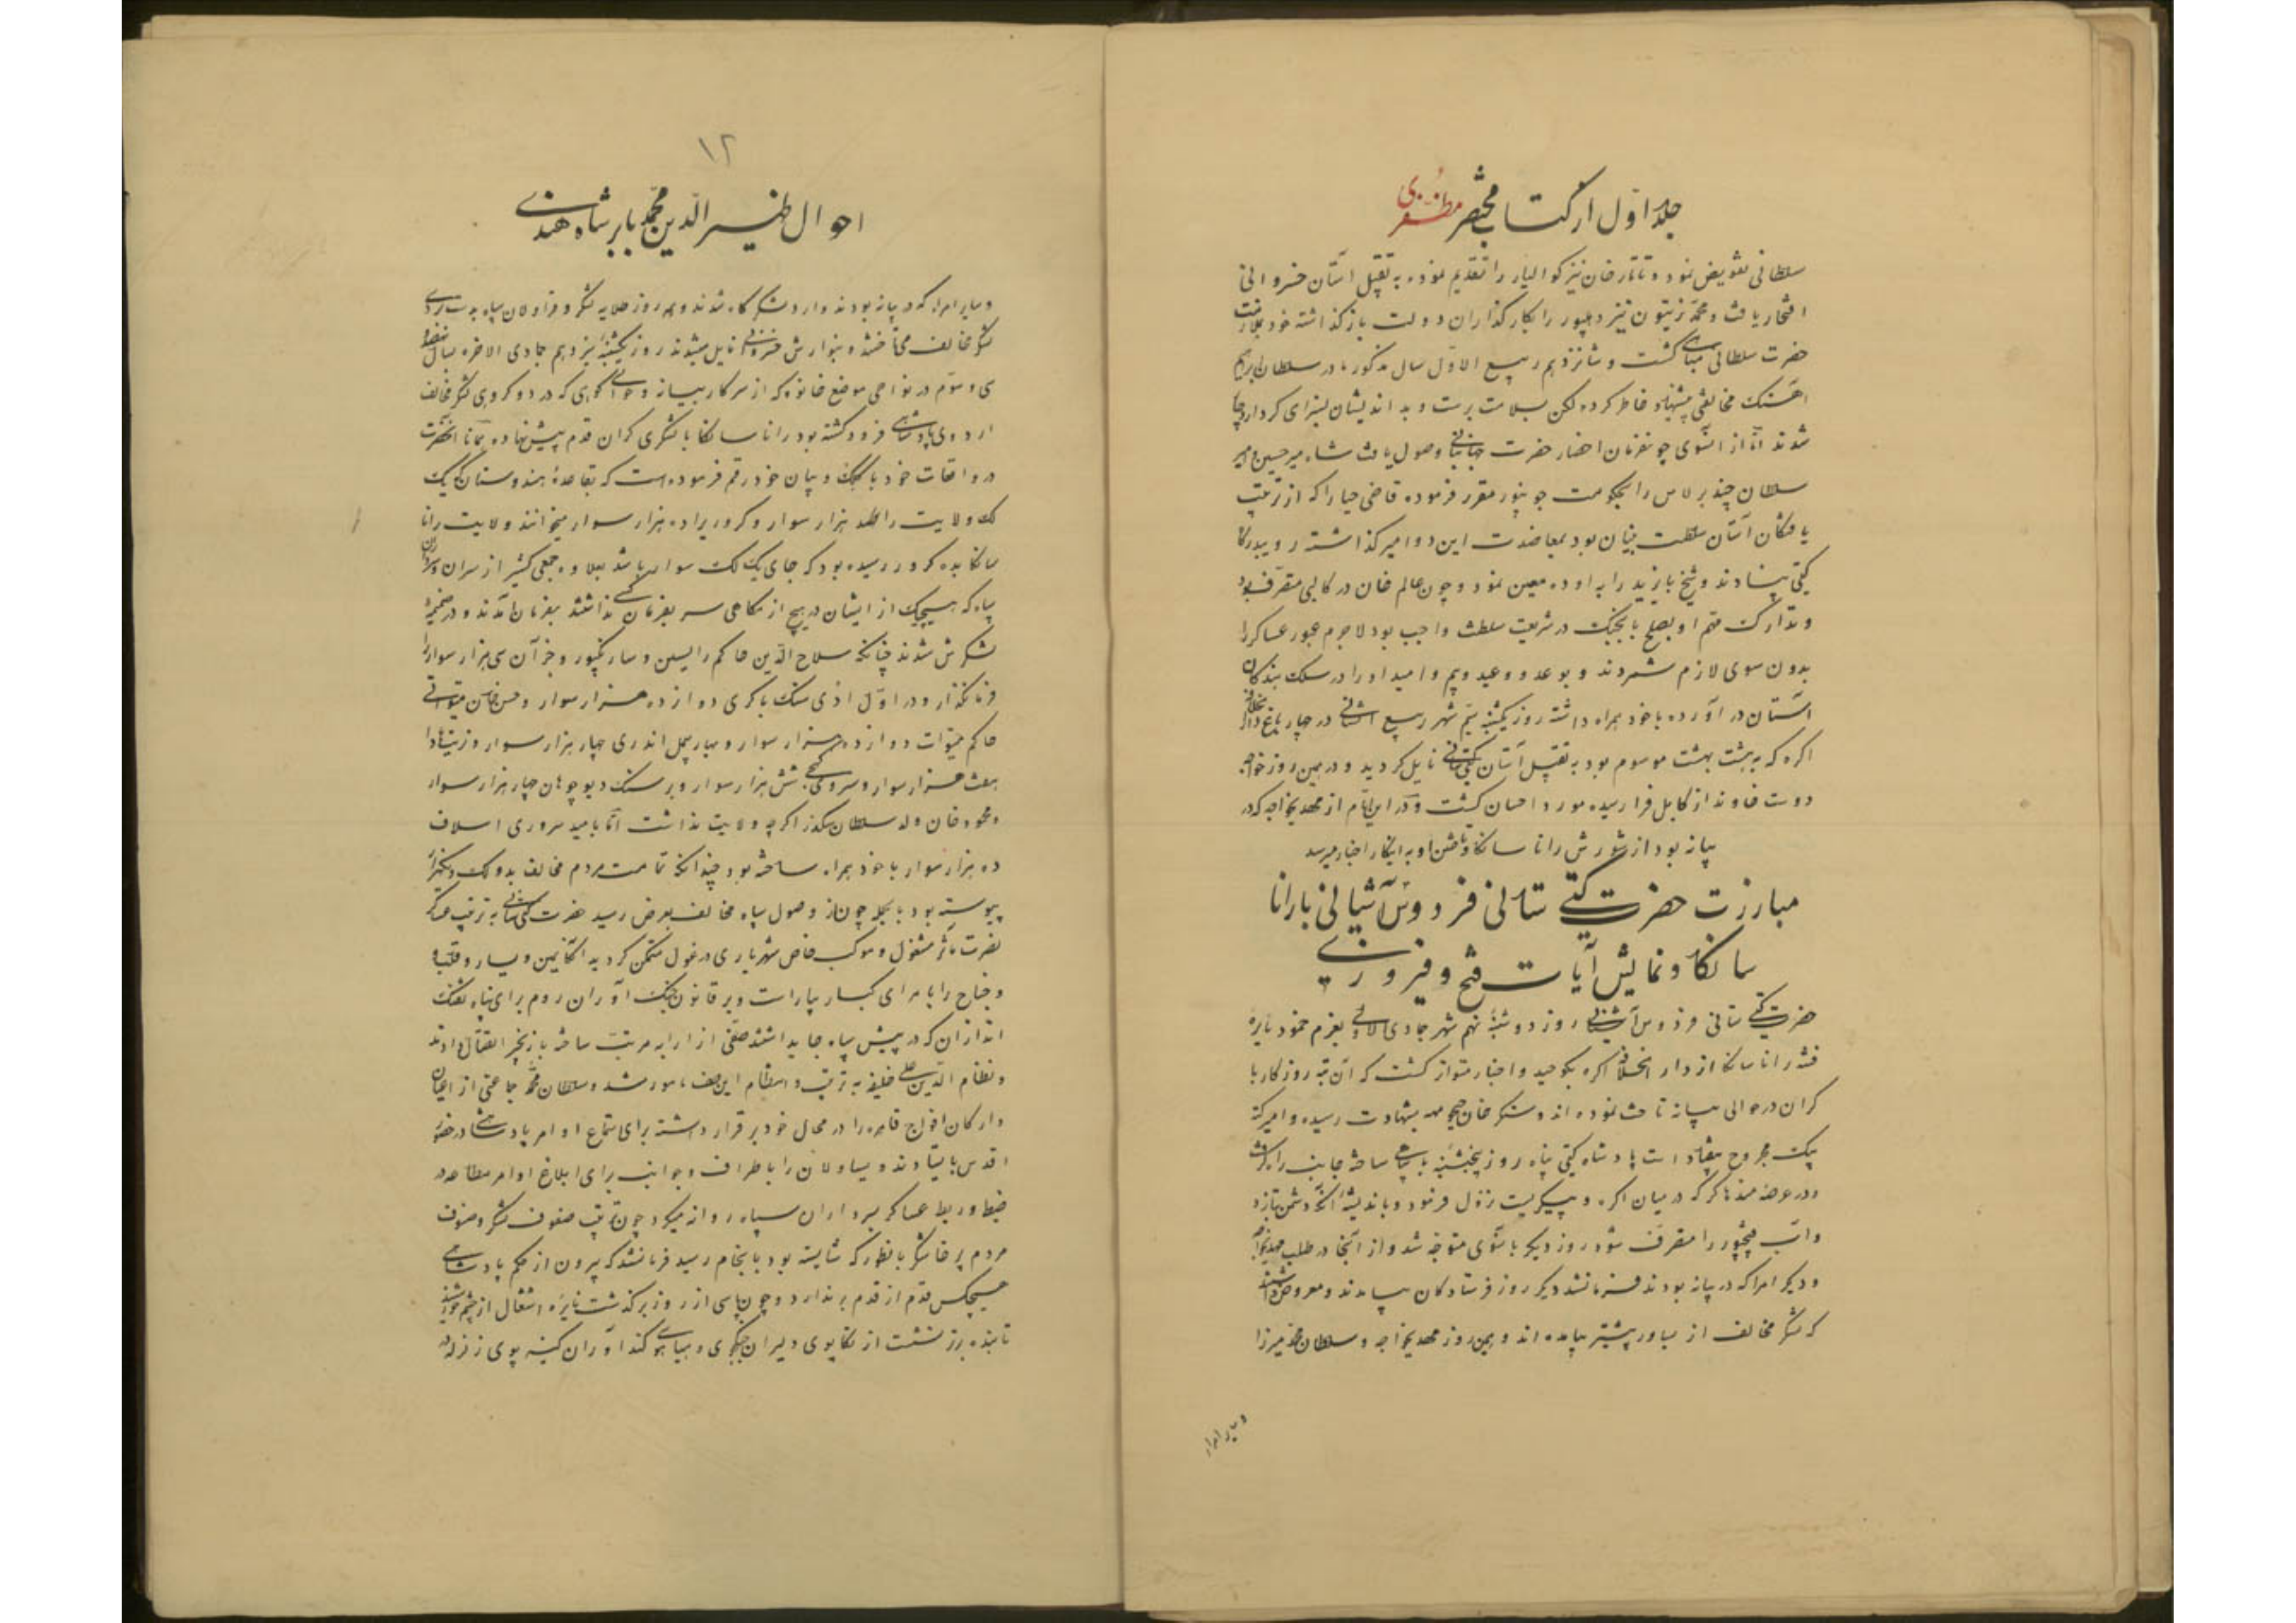 جلد اوّل از کتاب مختصر مظفری
سلطانی تفویض نمود و تاتار خان نیز کوالیار را تقدیم نموده به تقبیل آستان خسروانی
افتخار یافت و محمد زیتون نیز دهلپور را بکار گذاران دولت باز گذاشته خود بملازمت
حضرت سلطانی مباهی گشت و شانزدهم ربیع الاوّل سال مذکور مادر سلطان ابراهیم
آهنگ مخالفتی پیشنهاد خاطر کرده لکن بسلامت برست و بد اندیشان بسزای کردار دچار
شدند امّا از آنسوی چو نفرمان احضار حضرت جهانبانی وصول یافت شاه میر حسین و امیر
سلطان جنید برلاس را بحکومت جونپور مقرر فرموده قاضی حیا را که از تربیت
یافتگان آستان سلطنت بنیان بود بمعاضدت این دو امیر گذاشته رو بدرگاه
گیتی پناه نهادند و شیخ بایزید را به اوده معین نمود و چون عالم خان در کالپی متصرف بود
و تدارک مهم او بصلح یا بجنگ در شریعت سلطنت واجب بود لاجرم عبور عساکر را
بدون سوی لازم شمردند و بوعد و وعید و بیم و امید او را در سلک بندگان
آستان در آورده با خود همراه داشته روز یکشنبه سیّم شهر ربیع الثانی در چهار باغ دار الخلافه
اکره که به هشت بهشت موسوم بود به تقبیل آستان گیتی ستانی نایل گردید و در همین روز خواجه
دوست خاوند از کابل فرا رسیده مورد احسان گشت و در این ایّام از مهدیخواجه که در
بیانه بود از شورش رانا سانکا و تاختن او به اینکار اخبار میرسد
مبارزت حضرت گیتی ستانی فردوس آشیانی با رانا
سانکا و نمایش آیات فتح و فیروزی
حضرت گیتی ستانی فردوس آشیانی روز دوشنبه نهم شهر جمادی الاولی بعزم خمود نایره
فتنه رانا سانکا از دار الخلافه اکره بکوچید و اخبار متواتر گشت که آن تیره روزگار با
گران در حوالی بیانه تاخت نموده اند و سنکر خان جنجوهه بشهادت رسیده و امیر کته
بیک مجروح بیفتاده است پادشاه گیتی پناه روز پنجشنبه با سپاهی ساخته جانب راه گرفت
و در عرصه مذهاکر که در میان اکره و سیکری است نزول فرمود و باندیشه آنکه دشمن بتازد
و آب فتحپور را متصرف شود روز دیگر بآنسوی متوجه شد و از آنجا در طلب مهدیخواجه
و دیگر امرا که در بیانه بودند فرمانشد دیگر روز فرستادگان بیامدند و معروض داشتند
که لشکر مخالف از بساور پیشتر بیامده اند و همین روز مهدیخواجه و سلطان محمد میرزا
و سایر امراء
۱۲
احوال ظهیر الدّین محمّد بابر شاه هندی
و سایر امراء که در بیانه بودند وارد لشکر گاه شدند و همه روز طلایه لشکر و قراولان سپاه بدستبردی
لشکر مخالف می تاختند و بنوازش خسروانی نایل میشدند روز یکشنبه سیزدهم جمادی الاخره بسال نهصد و
سی و سوّم در نواحی موضع خانوه که از سرکار بیانه و حوالی کوهی که در دو کروهی لشکر مخالف
اردوی پادشاهی فرود گشته بود رانا سانکا با لشکری گران قدم پیش نهاده همانا آنحضرت
در واقعات خود با کلک و بیان خود رقم فرموده است که بقاعدهٔ هندوستان که یک
لک ولایت را یکصد هزار سوار و کروریرا ده هزار سوار میخوانند ولایت رانا
سانکا بده کرور رسیده بود که جای یک لک سوار باشد بعلاوه جمعی کثیر از سران و سرداران
سپاه که هیچیک از ایشان در هیچ ازمکاهی سر بفرمان کسی نداشتند بفرمان آمدند و در ضمیمهٔ
لشکرش شدند چنانکه سلاح الدّین حاکم رایسین و سارنکپور و جز آن سی هزار سوار را
فرمانگذار و در اوّل اذی سنک باکری دوازده هزار سوار و حسن خان میواتی
حاکم میوات دوازده هزار سوار و بهارمل اندری چهار هزار سوار و نرپت هادا
هفت هزار سوار و سروی کجی شش هزار سوار و برسنک دیو چوهان چهار هزار سوار
و محمود خان ولد سلطان سکندر اگرچه ولایت نداشت امّا بامید سروری اسلاف
ده هزار سوار با خود همراه ساخته بود چندانکه تمامت مردم مخالف بدو لک و یکهزار
پیوسته بود بالجمله چون از وصول سپاه مخالف بعرض رسید حضرت گیتی ستانی به ترتیب عساکر
نصرت مآثر مشغول و موکب خاص شهریاری در غول متمکن گردید آنگاه یمین و یسار و قلب و
و جناح را با امرای کبار بیاراست و بر قانون جنگ آوران روم برای پناه تفنگ
اندازان که در پیش سپاه جا بداشتند صفّی از ارابه مرتب ساخته با زنجیر اتّصال دادند
و نظام الدّین علی خلیفه به ترتیب و انتظام این صف مامور شد و سلطان محمّد جماعتی از اعیان
و ارکان افواج قاهره را در محال خود برقرار داشته برای استماع اوامر پادشاهی در حضور
اقدس بایستادند و یساولان را باطراف و جوانب برای ابلاغ اوامر مطاعه در
ضبط و ربط عساکر بسرداران سپاه روانه میکرد چون ترتیب صفوف لشکر و صنوف
مردم پرخاشگر بانطور که شایسته بود بانجام رسید فرمانشد که بیرون از حکم پادشاهی
هیچکس قدم از قدم بر ندارد و چون پاسی از روز برگذشت نایره اشتعال از چشم خورشید
تابنده برتر نشست از تکاپوی دلیران جنگجوی و هیاهوی کند آوران کینه پوی زلزله در